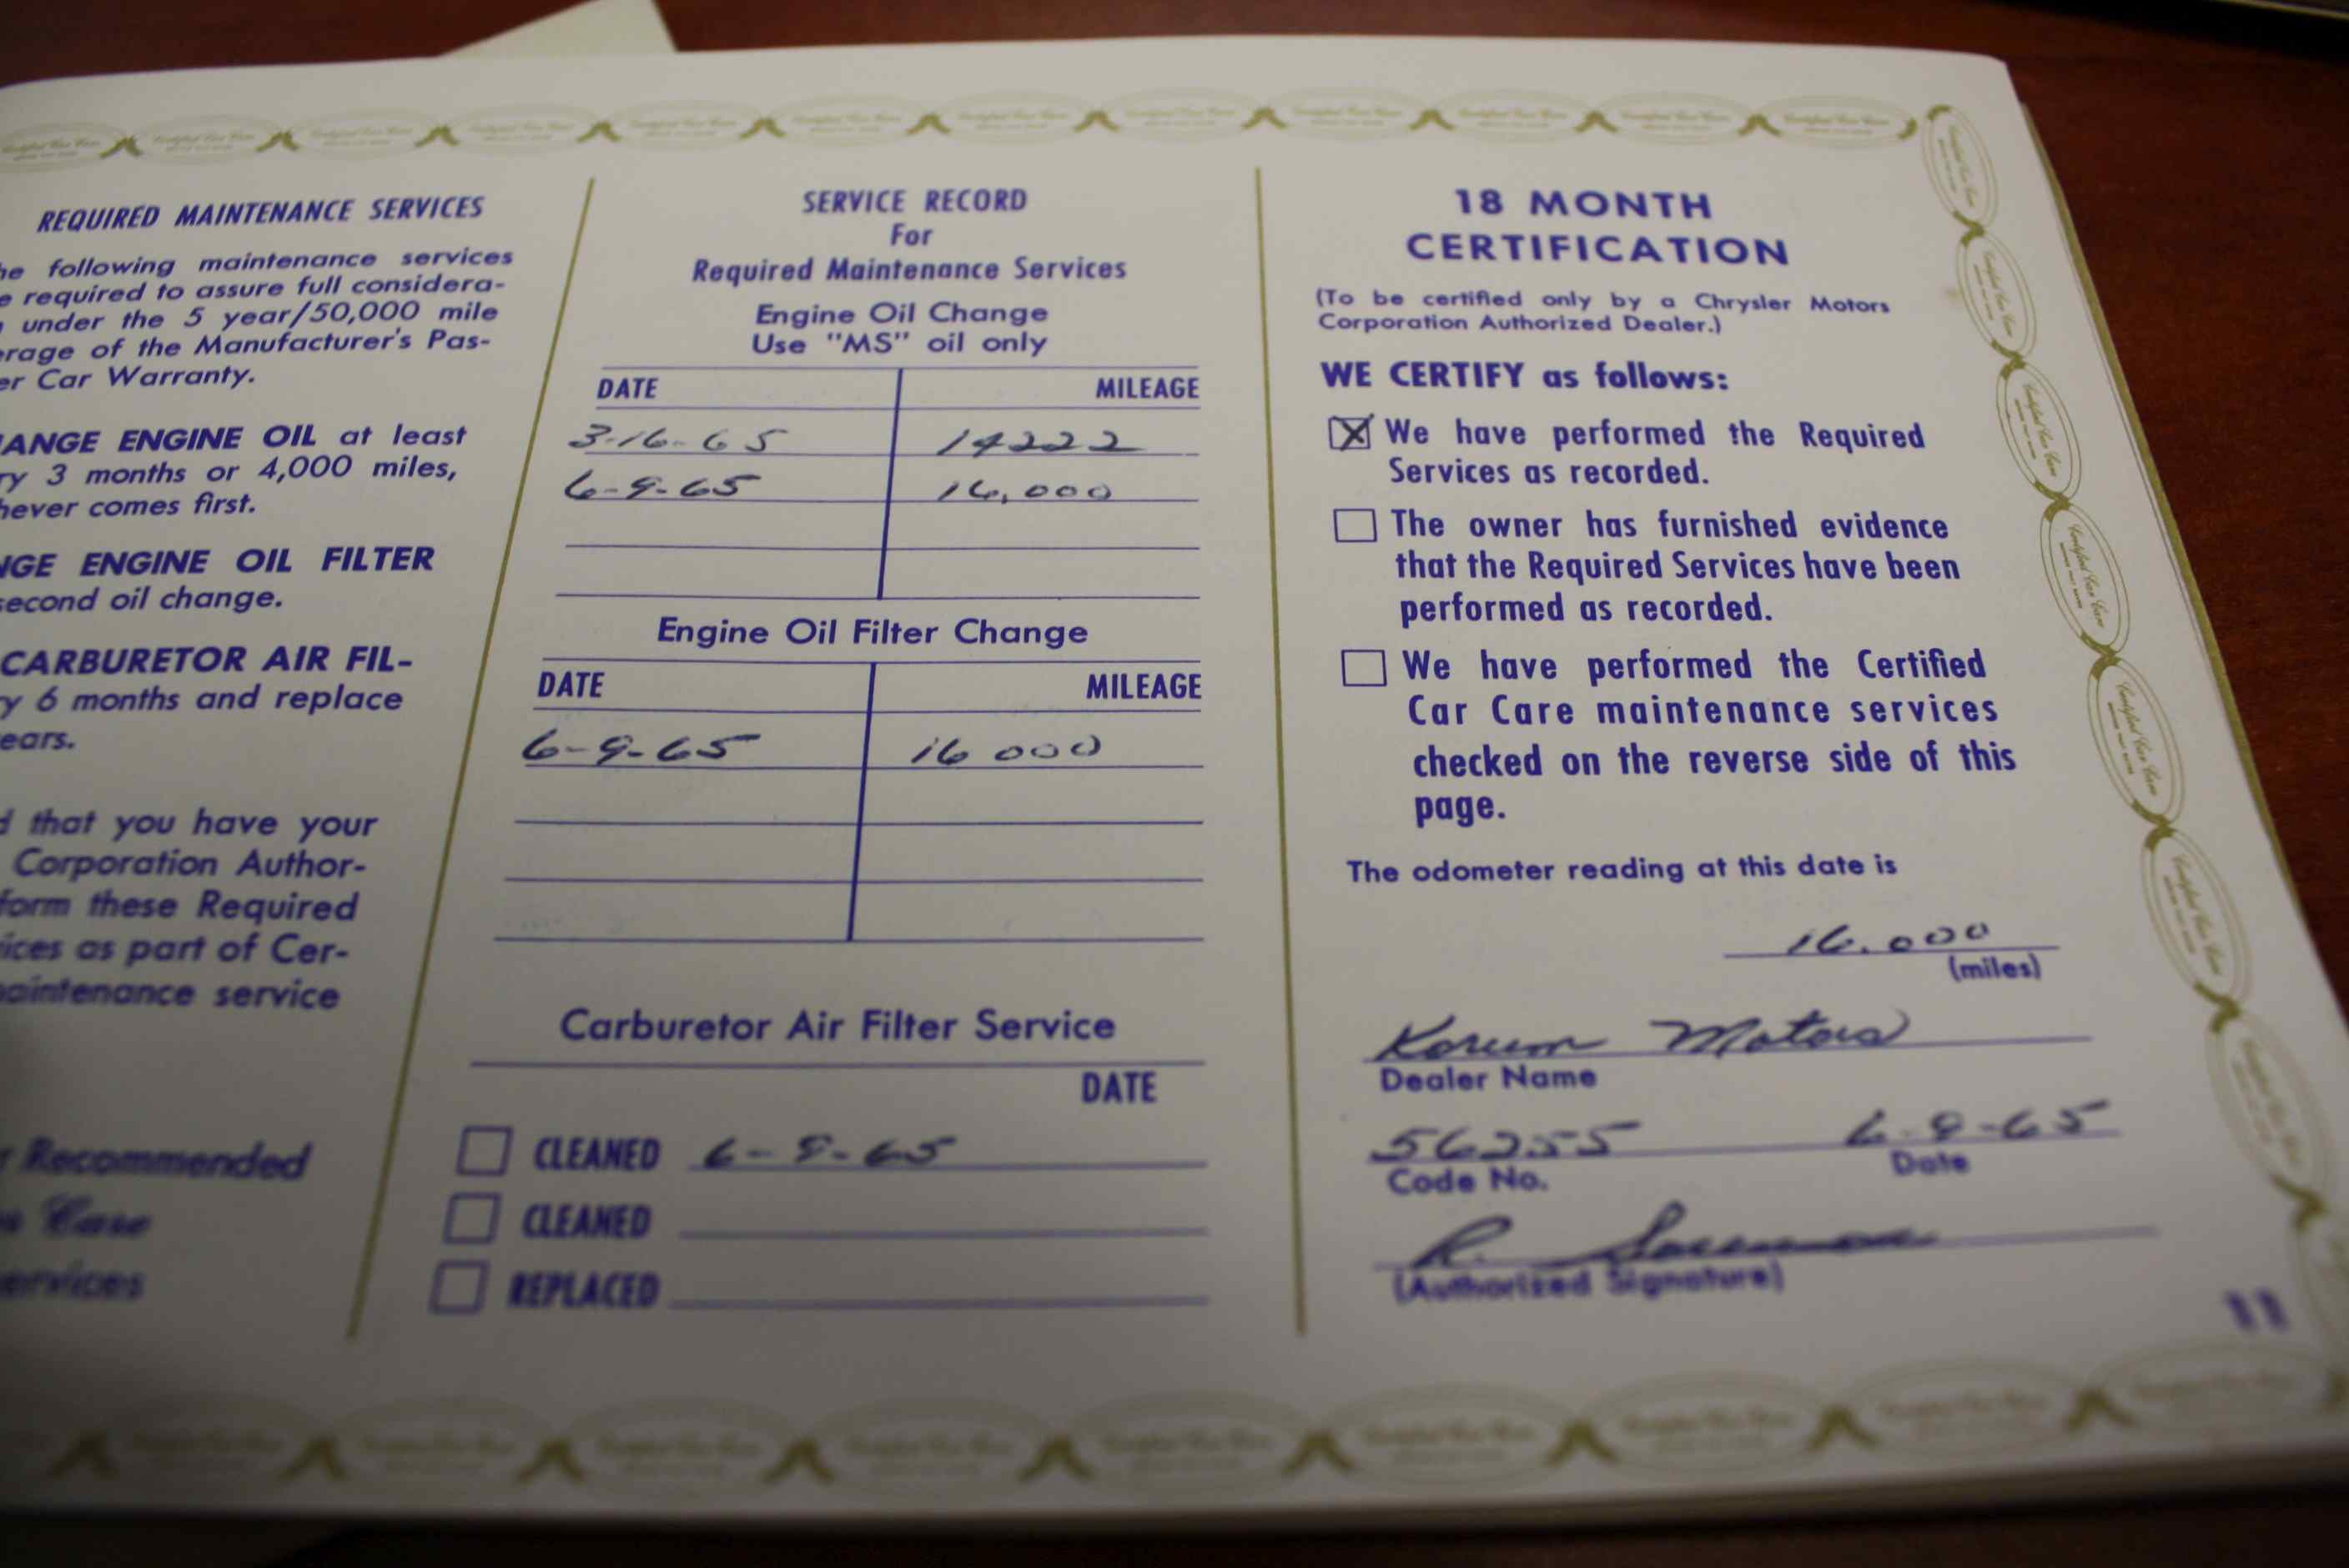 REQUIRED MAINTENANCE SERVICES
following maintenance services
required to assure full considera-
under the 5 year/50,000 mile
of the Manufacturer's Pas-
Car Warranty.
ENGINE OIL at least
3 months or 4,000 miles,
comes first.
ENGINE OIL FILTER
second oil change.
CARBURETOR AIR FIL-
6 months and replace
that you have your
Corporation Author-
these Required
as part of Cer-
service
Recommended
SERVICE RECORD
For
Required Maintenance Services
Engine Oil Change
Use "MS" oil only
DATE MILEAGE
3-16-65 14222
6-9-65 16,000
Engine Oil Filter Change
DATE MILEAGE
6-9-65 16 000
Carburetor Air Filter Service
DATE
CLEANED 6-9-65
CLEANED
REPLACED
18 MONTH
CERTIFICATION
(To be certified only by a Chrysler Motors
Corporation Authorized Dealer.)
WE CERTIFY as follows:
We have performed the Required
Services as recorded.
The owner has furnished evidence
that the Required Services have been
performed as recorded.
We have performed the Certified
Car Care maintenance services
checked on the reverse side of this
page.
The odometer reading at this date is
16.000
(miles)
Korum Motors
Dealer Name
56255 6-9-65
Code No. Date
R.
(Authorized Signature)
11